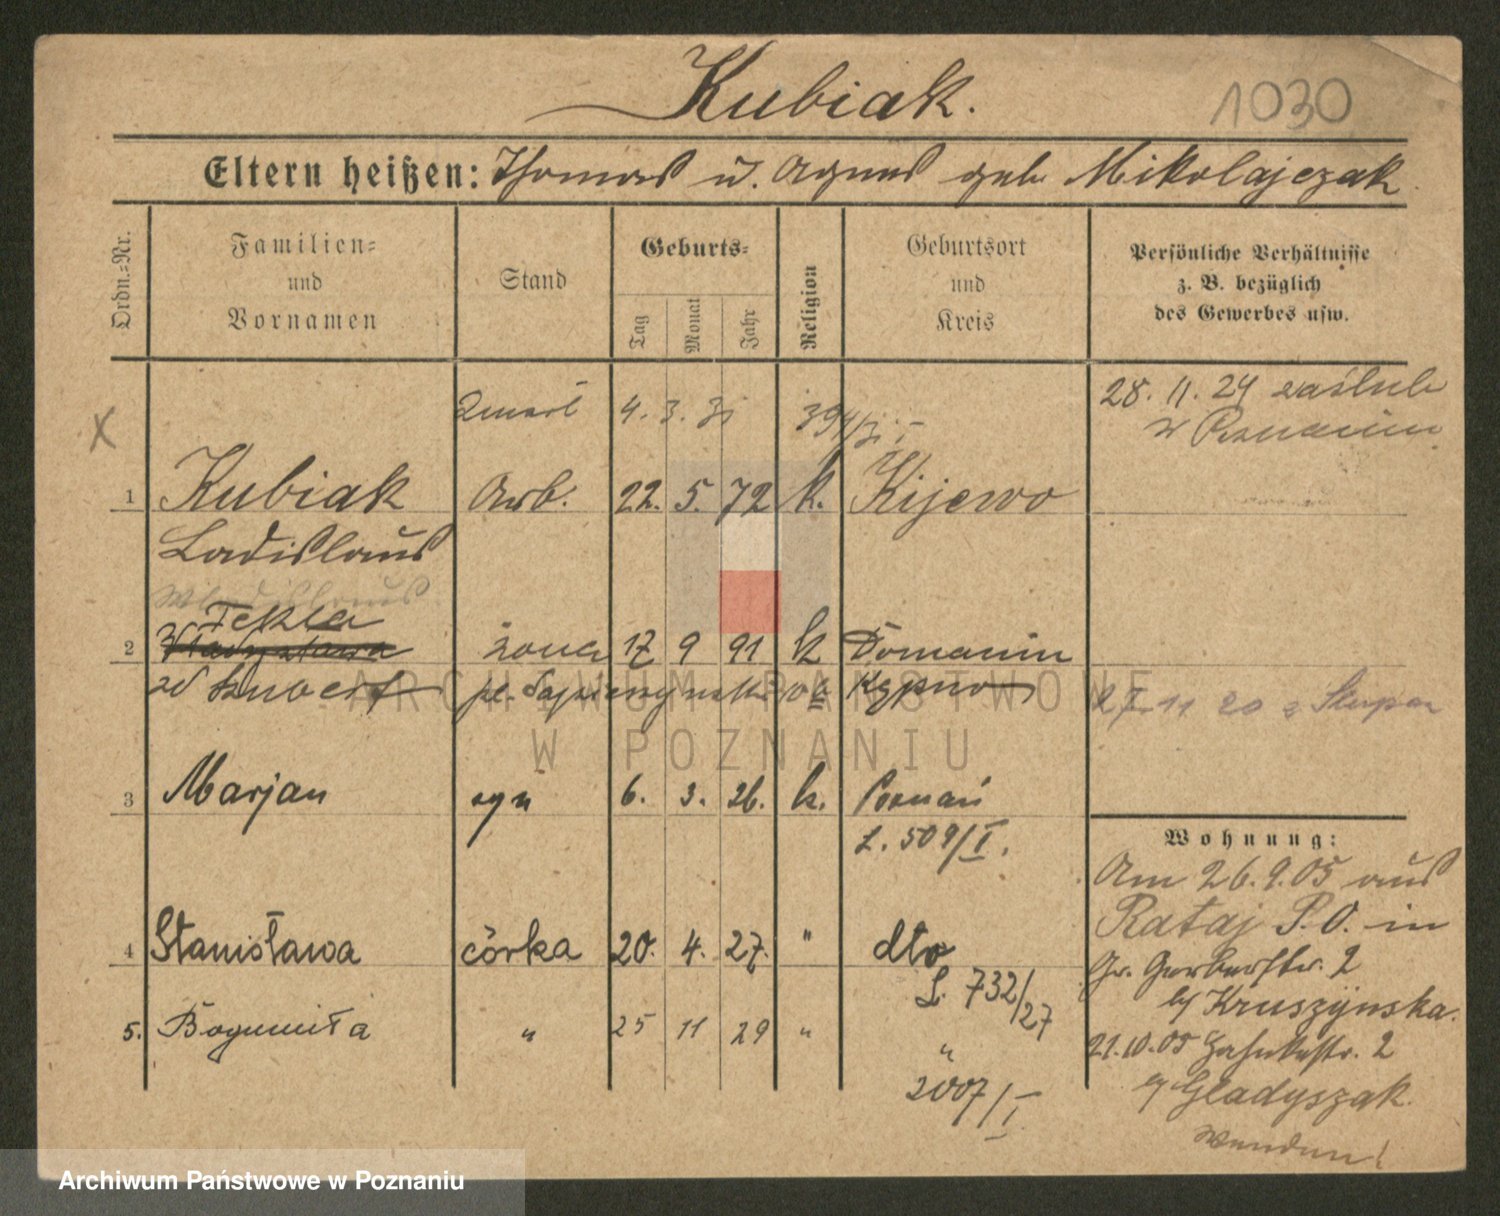 Kubiak.
1030
Eltern heißen: Thomas u. Agnes geb. Mikolajczak
Ordn.-Nr.
Familien-
und
Vornamen
Stand
Geburts-
Tag
Monat
Jahr
Religion
Geburtsort
und
Kreis
Persönliche Verhältnisse
z. B. bezüglich
des Gewerbes usw.
X
zmarł 4. 3. 31 394/31
28. 11. 24 zaślub
w Poznaniu
1 Kubiak Arb. 22. 5. 72 k. Kijewo
Ladislaus
Wladislaus
Tekla
2 Władysława żona 17 9 91 k Domanin
zd Kubert Kępno
27. 11 20 z
3 Marjan syn 6. 3. 26. k. Poznań
L. 509/I.
Wohnung:
Am 26.9.05 aus
Rataj P.O. in
Gr. Gerberstr. 2
bei Kruszynska.
21.10.05 2
bei Gladyszak.
Wenden!
4 Stanisława córka 20. 4. 27. " dto
L. 732/27
5. Bogumiła " 25 11 29 " "
2007/I
ARCHIWUM PAŃSTWOWE
W POZNANIU
Archiwum Państwowe w Poznaniu